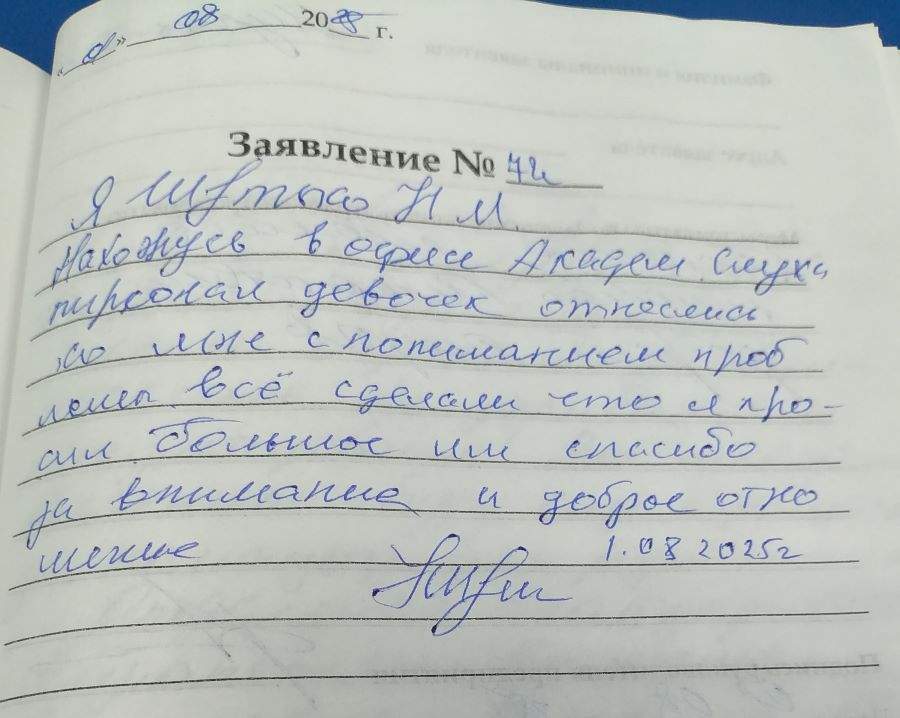 « » 08 2025 г.
Заявление №
Я Н М.
Нахожусь в офисе Академ. слуха
пирсонал девочек отнеслись
ко мне с пониманием проб
лемы всё сделали что я про-
сил большое им спасибо
за внимание и доброе отно
шение 1.08 2025г